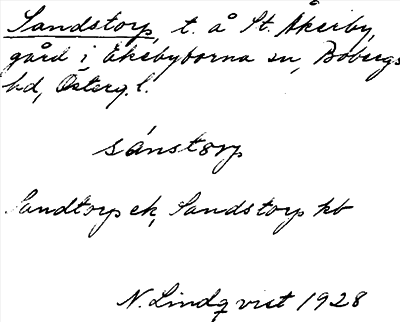 Sandstorp, t. å St. Åkerby,
gård i Ekebyborna sn, Bobergs
hd, Österg. l.
sánstorp
Sandtorp ek, Sandstorp kb
N. Lindqvist 1928